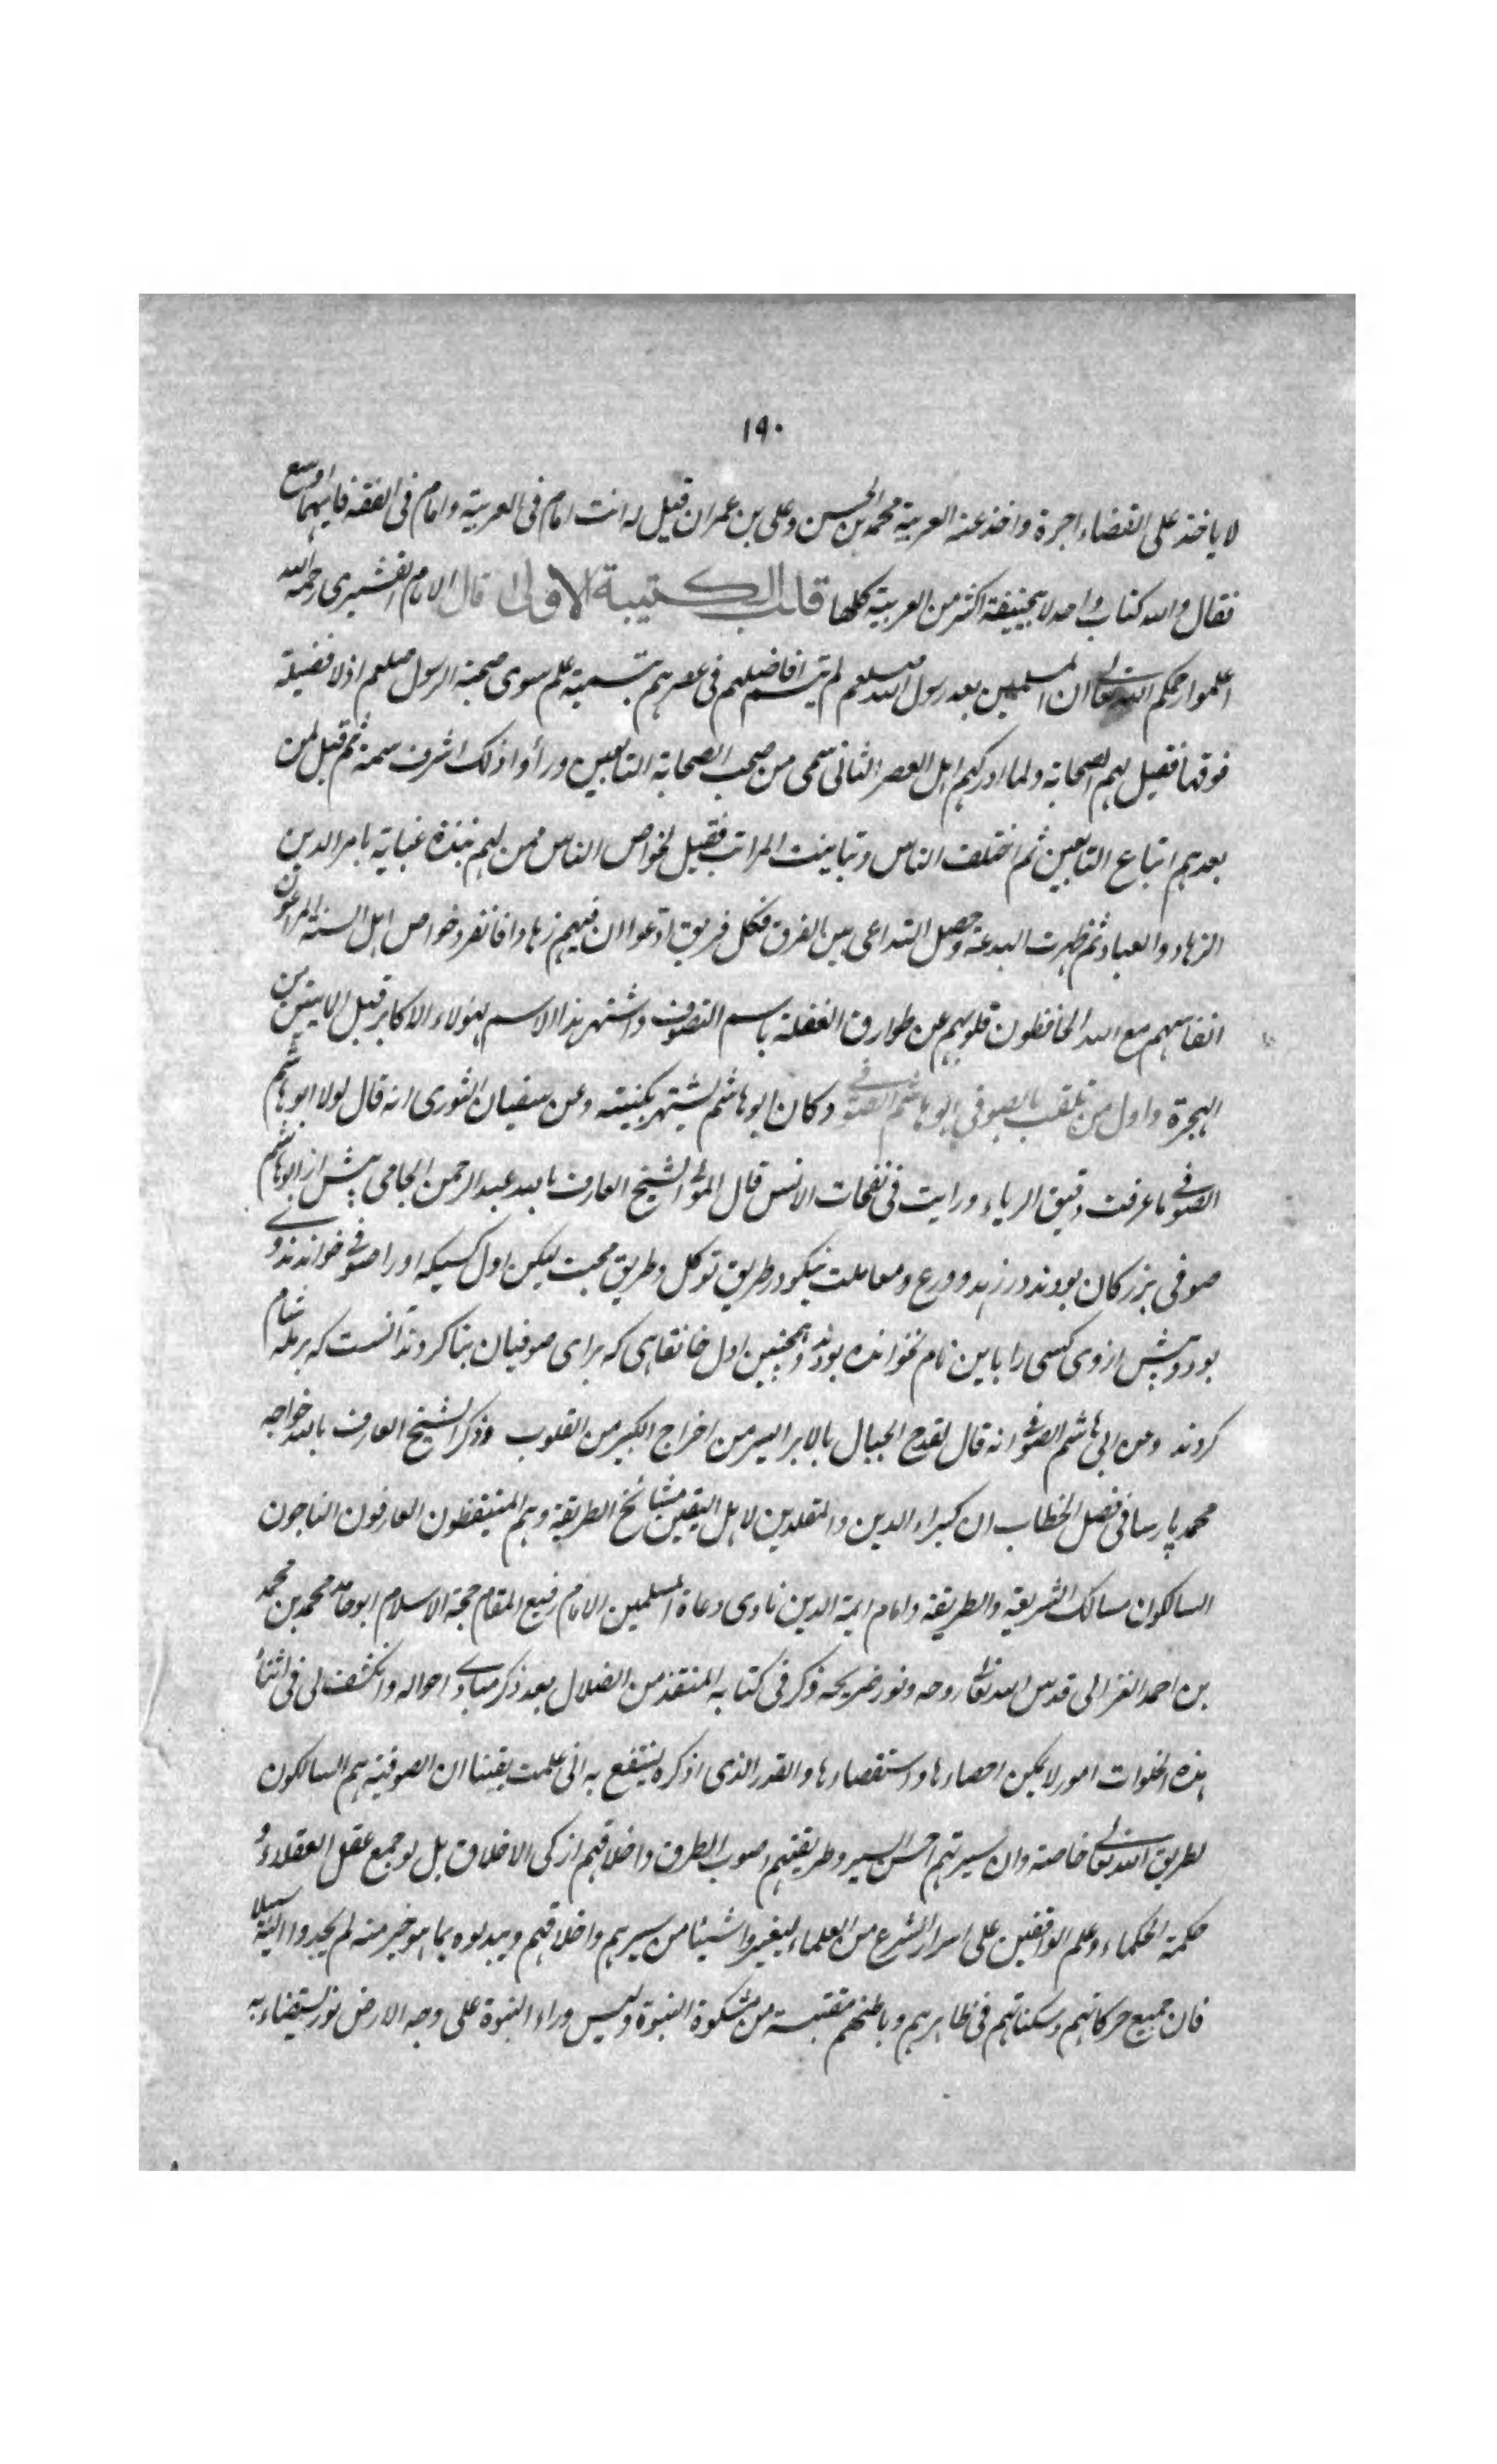 ١٩٠
لا ياخذ على القضاء اجرة واخذ عنه العربية محمد بن الحسن وعلى بن عمران قيل له انت امام فى العربية وامام فى الفقه فايهما اوسع
فقال والله كتاب واحد لابيحنيفة اكثر من العربية كلها قلب الكتيبة الاولى قال الامام القشيرى رحمه الله
اعلموا رحمكم الله تعالى ان المسلمين بعد رسول الله صلعم لم يتسم افاضلهم فى عصرهم بتسمية علم سوى صحبة الرسول صلعم اذ لا فضيلة
فوقها فقيل لهم الصحابة ولما ادركهم اهل العصر الثانى سمى من صحب الصحابة التابعين وراوا ذلك اشرف سمة ثم قيل لمن
بعدهم اتباع التابعين ثم اختلف الناس وتباينت المراتب فقيل لخواص الناس ممن لهم نبذة عناية بامر الدين
الزهاد والعباد ثم ظهرت البدعة وحصل التداعى بين الفرق فكل فريق ادعوا ان فيهم زهادا فانفرد خواص اهل السنة المراعون
انفاسهم مع الله الحافظون قلوبهم عن طوارق الغفلة باسم التصوف واشتهر هذا الاسم لهؤلاء الاكابر قبل المايتين من
الهجرة واول من تلقب بالصوفى ابو هاشم الصوفى وكان ابو هاشم يشتهر بكنيته وعن سفيان الثورى انه قال لولا ابو هاشم
الصوفى ما عرفت دقيق الرياء ورايت فى نفحات الانس قال المولى الشيخ العارف بالله عبد الرحمن الجامى پيش از ابو هاشم
صوفى بزركان بودند در زهد وورع ومعاملت نيكو در طريق توكل وطريق محبت ليكن اول كسيكه او را صوفى خواندند وى
بود وپيش از وى كسى را باين نام نخوانده بودند وهمچنين اول خانقاهى كه براى صوفيان بنا كردند آنست كه برمله شام
كردند وعن ابى هاشم الصوفى انه قال لقلع الجبال بالابر ايسر من اخراج الكبر من القلوب وذكر الشيخ العارف بالله خواجه
محمد پارسا فى فصل الخطاب ان كبراء الدين والمقلدين لاهل اليقين مشائخ الطريقة وهم المتيقظون العارفون الناجون
السالكون مسالك الشريعة والطريقة وامام ايمة الدين هادى دعاة المسلمين الامام رفيع المقام حجة الاسلام ابو حامد محمد بن محمد
بن احمد الغزالى قدس الله تعالى روحه ونور ضريحه ذكر فى كتابه المنقذ من الضلال بعد ذكر مبادى احواله وانكشف لى فى اثناء
هذه الخلوات امور لا يمكن احصاءها واستقصاءها والقدر الذى اذكره لينتفع به انى علمت يقينا ان الصوفية هم السالكون
لطريق الله تعالى خاصة وان سيرتهم احسن السير وطريقتهم اصوب الطرق واخلاقهم ازكى الاخلاق بل لو جمع عقل العقلاء و
حكمة الحكماء وعلم الواقفين على اسرار الشرع من العلماء ليغيروا شيئا من سيرهم واخلاقهم ويبدلوه بما هو خير منه لم يجدوا اليه سبيلا
فان جميع حركاتهم وسكناتهم فى ظاهرهم وباطنهم مقتبسة من مشكوة النبوة وليس وراء النبوة على وجه الارض نور يستضاء به